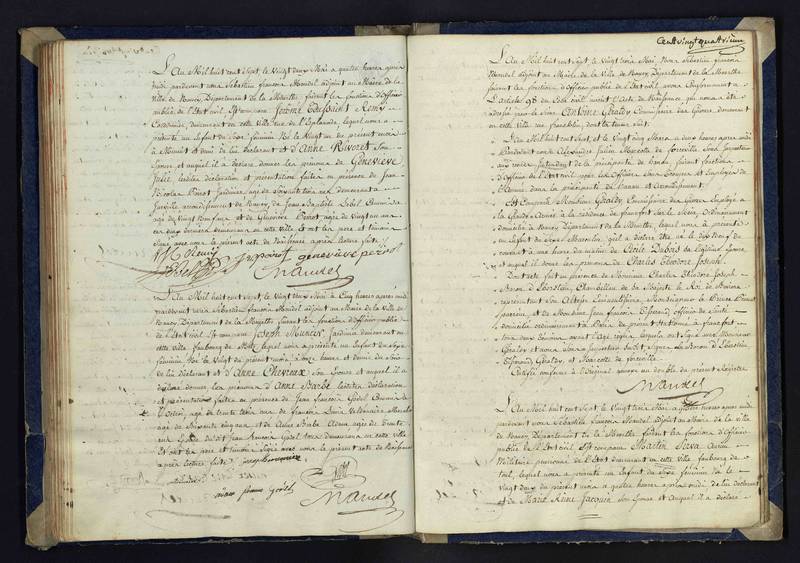 L'an Mil huit cent Sept, le Vingt deux Mai a quatre heures apres
midi pardevant nous Sébastien françois Mandel adjoint au Maire de la
Ville de Nancy, Département de la Meurthe, faisant les fonctions d'officier
public de l'Etat civil, Est comparu Jérôme Remy
demeurant en cette Ville rue de l'Esplanade, lequel nous a
présenté un Enfant du Sexe féminin Né le Vingt un du présent mois
à Minuit et demi de lui déclarant et d'Anne Rivoret Son
Epouse et auquel il a déclaré donner les prénoms de Geneviève
Julie, lesdites déclaration et présentation faites en présence de Jean
Nicolas Poirot Jardinier, âgé de Soixante trois ans, demeurant à
Jarville arrondissement de Nancy, de Jean Baptiste Lebel
âgé de Vingt Neuf ans et de Geneviève Poirot âgée de Vingt un ans
tous deux demeurant en cette Ville, Et ont les pere et témoins
Signé avec nous le présent acte de Naissance après lecture faite
JRemy
Lebel jnpoirot genevieve perot
Mandel
L'an Mil huit cent Sept, le Vingt deux Mai à Cinq heures après midi
pardevant nous Sébastien françois Mandel adjoint au Maire de la Ville de
Nancy, Département de la Meurthe, faisant les fonctions d'officier public
de l'Etat civil, Est comparu Joseph Munier Jardinier demeurant en
cette Ville faubourg de Metz, lequel nous a présenté un Enfant du Sexe
féminin Né le Vingt du présent mois à onze heures et demie du Soir
de lui déclarant et d'Anne Chevreux Son Epouse et auquel il a
déclaré donner les prénoms d'Anne Barbe lesdites déclaration
et présentation faites en présence de Jean françois Godel
âgé de trente trois ans de françois Louis
âgé de Soixante cinq ans et de Anne Barbe
Epouse dudit Jean françois Godel tous demeurant en cette Ville
Et ont les pere et témoins Signé avec nous le présent acte de Naissance
après lecture faite
jean franc Godel
Mandel
Cent vingt quatrième
L'an Mil huit cent Sept, le Vingt trois Mai, Nous Sébastien françois
Mandel adjoint au Maire de la Ville de Nancy, Département de la Meurthe
faisant les fonctions d'officier public de l'Etat civil, avons Conformément à
l'article 98 du Code civil inscrit l'acte de Naissance qui nous a été
adressé par le Sieur Antoine Géraldy Commissaire des Guerres demeurant
en cette Ville rue dont la teneur suit,
L'an Mil huit cent Sept, et le Vingt cinq Mars a deux heures apres midi
Pardevant nous Alexandre Julien Marcotte de Forceville Sous Inspecteur
aux revues Intendant de la principauté de hanau faisant fonctions
d'officier de l'Etat civil pour les officiers Sans Troupes et Employés de
l'Armée dans la principauté de hanau et arrondissement,
Est Comparu Monsieur Géraldy, Commissaire des Guerres Employé à
la Grande Armée à la résidence de francfort sur le Mein, ordinairement
domicilié à Nancy Département de la Meurthe, lequel nous a présenté
un Enfant du Sexe Masculin, qu'il a déclaré être né le dix Neuf du
courant à une heure du matin de Cécile Dubois Sa Légitime Epouse
et auquel il donne les prénoms de Charles Théodore Joseph,
Dont acte fait en présence de Messieurs Charles Théodore Joseph
Baron d'Eberstein, Chambellan de Sa Majesté le Roi de Bavière
représentant Son Altesse Eminentissime, Monseigneur le Prince Primat
parrein, et de Monsieur Jean françois officier de Santé
domicilié ordinairement à Paris de présent stationné à francfort
tous deux témoins ayant l'âge requis, lesquels ont signé avec Monsieur
Géraldy et nous Sous Inspecteur Susdit, Signé, Le Baron d'Eberstein
Géraldy, et Marcotte de forceville.
Certifié conforme à l'original annexé au double du présent Registre
Mandel
L'an Mil huit cent Sept, le Vingt trois Mai, a quatre heures apres midi
pardevant nous Sébastien françois Mandel adjoint au Maire de la Ville
de Nancy, Département de la Meurthe faisant les fonctions d'officier
public de l'Etat civil, Est comparu Martin Serva ancien
Militaire pensionné de l'Etat demeurant en cette Ville faubourg de
toul, lequel nous a présenté un Enfant du Sexe féminin Né le
Vingt deux du présent mois a quatre heures après midi de lui déclarant
et de Marie Reine Jacquin Son Epouse et auquel il a déclaré